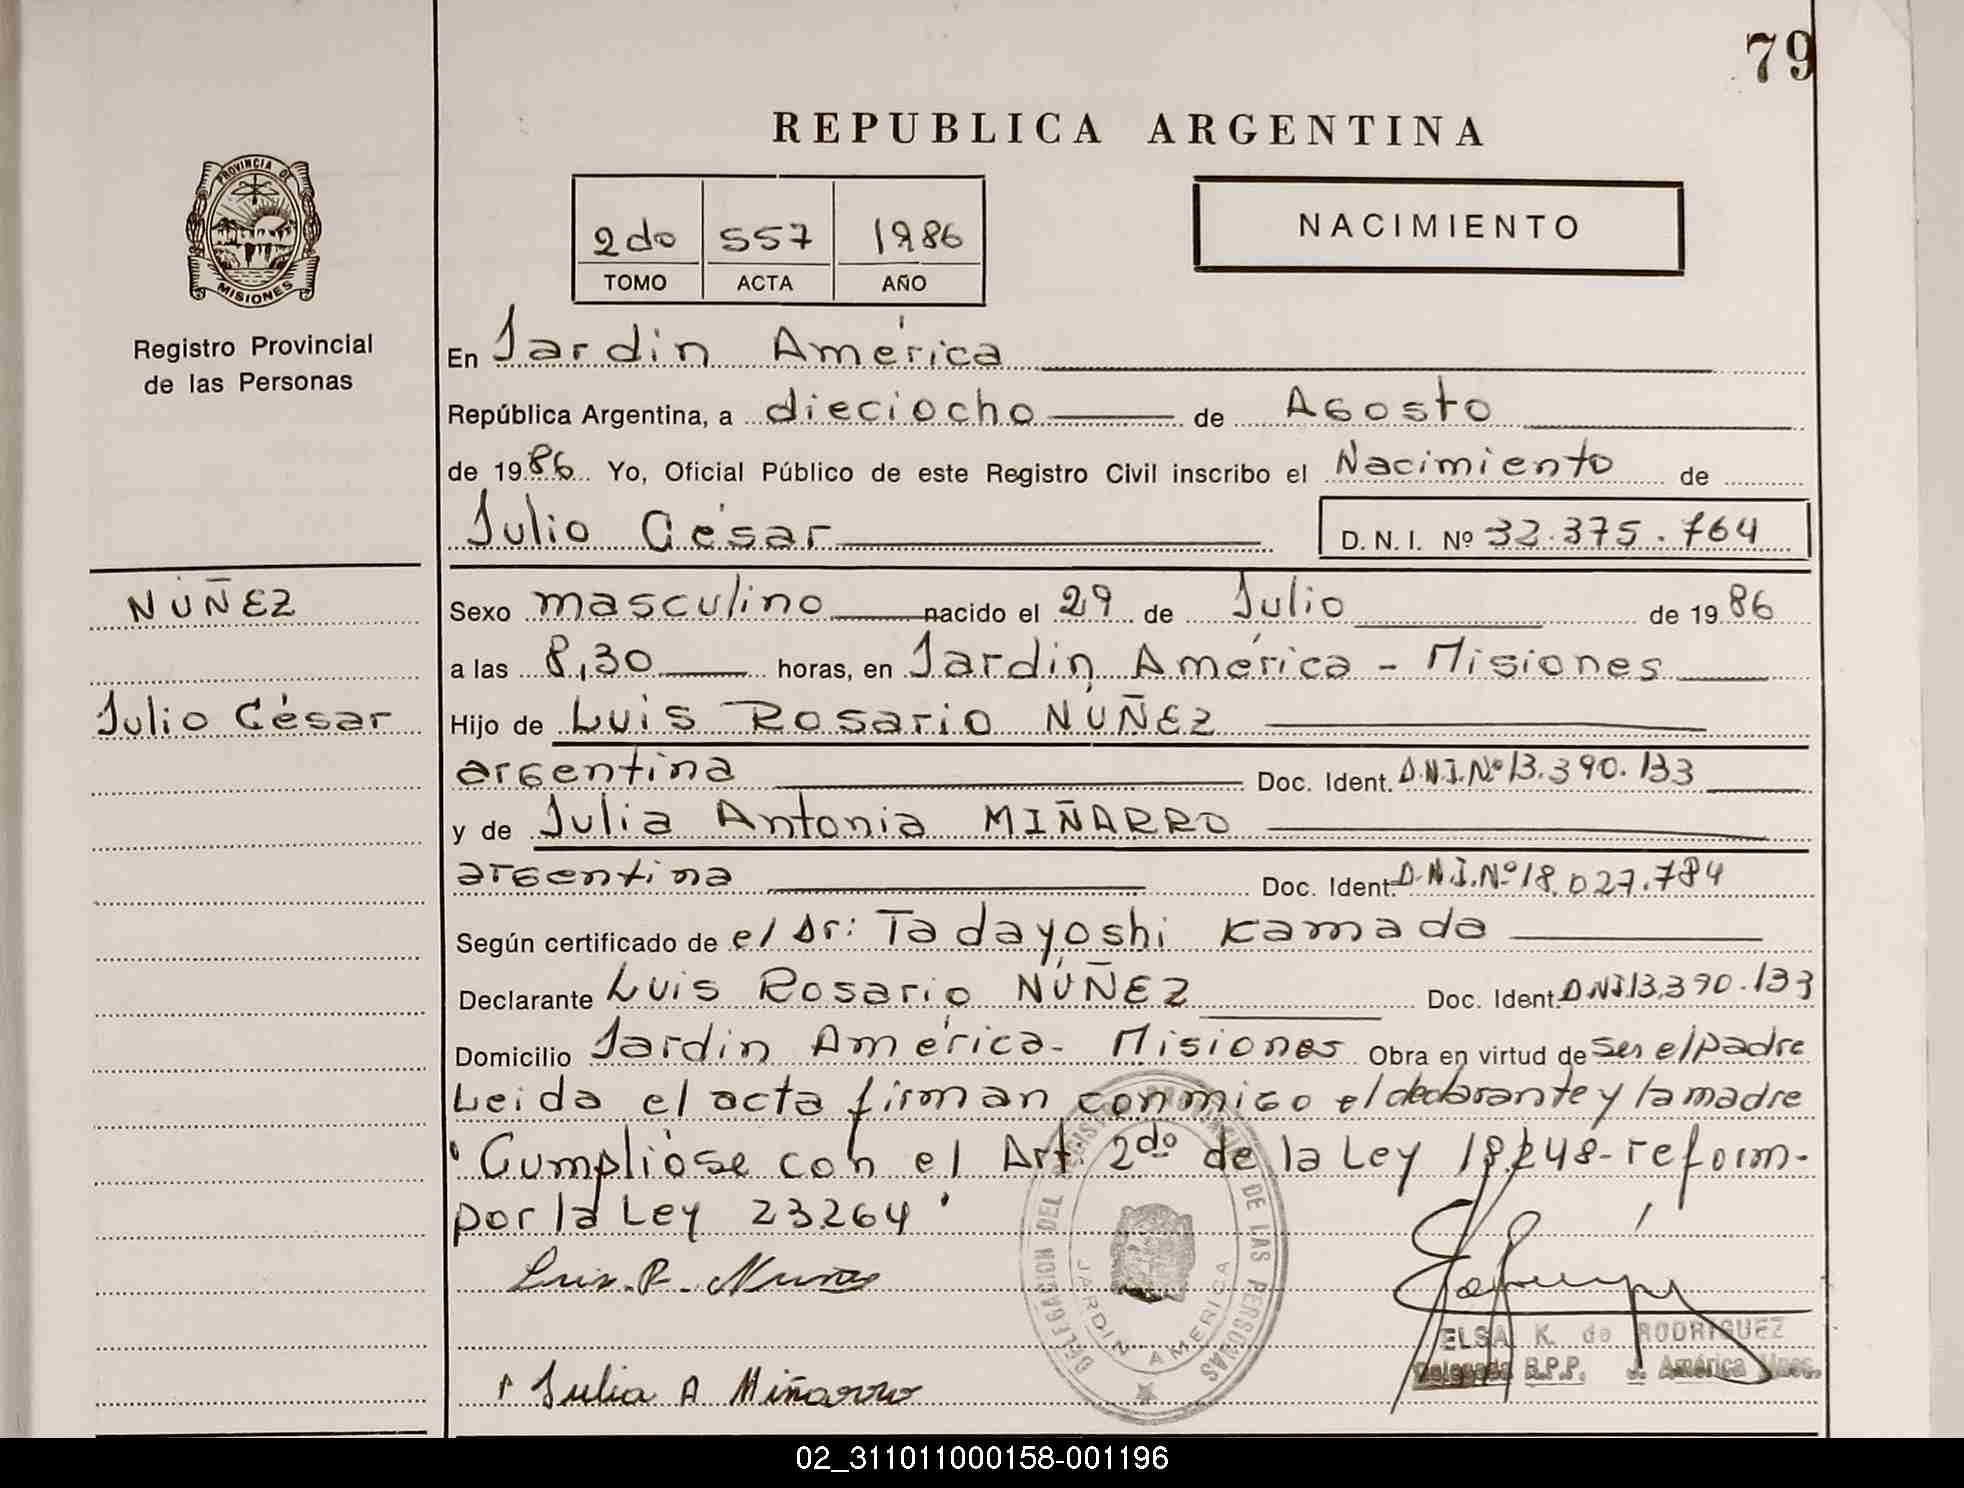 79
REPUBLICA ARGENTINA
PROVINCIA DE
MISIONES
Registro Provincial
de las Personas
2do 557 1986
TOMO ACTA AÑO
NACIMIENTO
En Jardin América
República Argentina, a dieciocho de Agosto
de 1986 Yo, Oficial Público de este Registro Civil inscribo el Nacimiento de
Julio César D.N.I. Nº 32.375.764
NÚÑEZ
Julio César
Sexo masculino nacido el 29 de Julio de 1986
a las 8,30 horas, en Jardin América - Misiones
Hijo de Luis Rosario NÚÑEZ
argentina Doc. Ident. D.N.I.Nº 13.390.133
y de Julia Antonia MIÑARRO
argentina Doc. Ident. D.N.I.Nº 18.027.784
Según certificado de el Dr: Tadayoshi Kamada
Declarante Luis Rosario NÚÑEZ Doc. Ident. DNI 13.390.133
Domicilio Jardin América - Misiones Obra en virtud de ser el padre
Leida el acta firman conmigo el declarante y la madre
"Cumplióse con el Art. 2do de la Ley 18248-reform-
por la Ley 23264"
Luis R. Nuñez
Julia A Miñarro
DELEGACION DEL REGISTRO PROVINCIAL DE LAS PERSONAS
JARDIN AMERICA
ELSA K. de RODRIGUEZ
Delegada R.P.P. J. América Mnes.
02_311011000158-001196